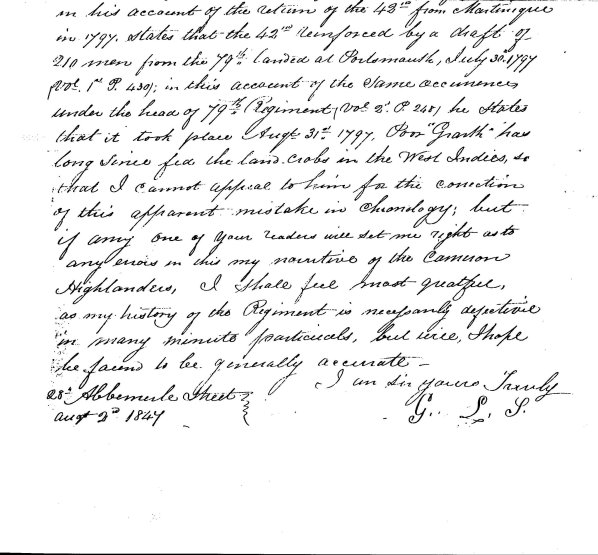 in his account of the return of the 42nd from Martinique
in 1797. states that the 42nd reinforced by a draft of
210 men from the 79th landed at Portsmouth, July 30th 1797
(Vol. 1st P. 430); in this account of the same occurrences
under the head of 79th Regiment (Vol 2d. P. 248) he States
that it took place Augt 31st 1797. Poor "Granth" has
long sence fed the land. crabs in the West Indies, so
that I cannot appeal to him for the correction
of this apparent mistake in chronology; but
if any one of your readers will set me right as to
any errors in this my narrative of the Cameron
Highlanders, I shall feel most grateful,
as my history of the Regiment is necessarily defective
in many minute particulars, but will, I hope
be found to be generally accurate -
I am sir yours Truely
28th Abbemerle Street
augt 2d 1847
G. L. S.